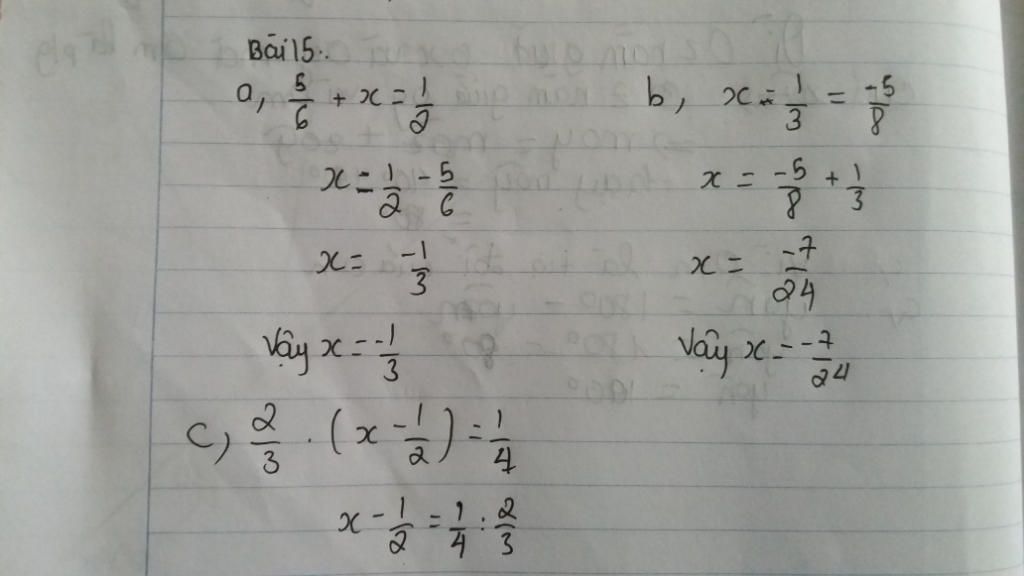 Bài 15.
a, 5/6 + x = 1/2
x = 1/2 - 5/6
x = -1/3
Vậy x = -1/3
b, x - 1/3 = -5/8
x = -5/8 + 1/3
x = -7/24
Vậy x = -7/24
c, 2/3 . (x - 1/2) = 1/4
x - 1/2 = 1/4 : 2/3